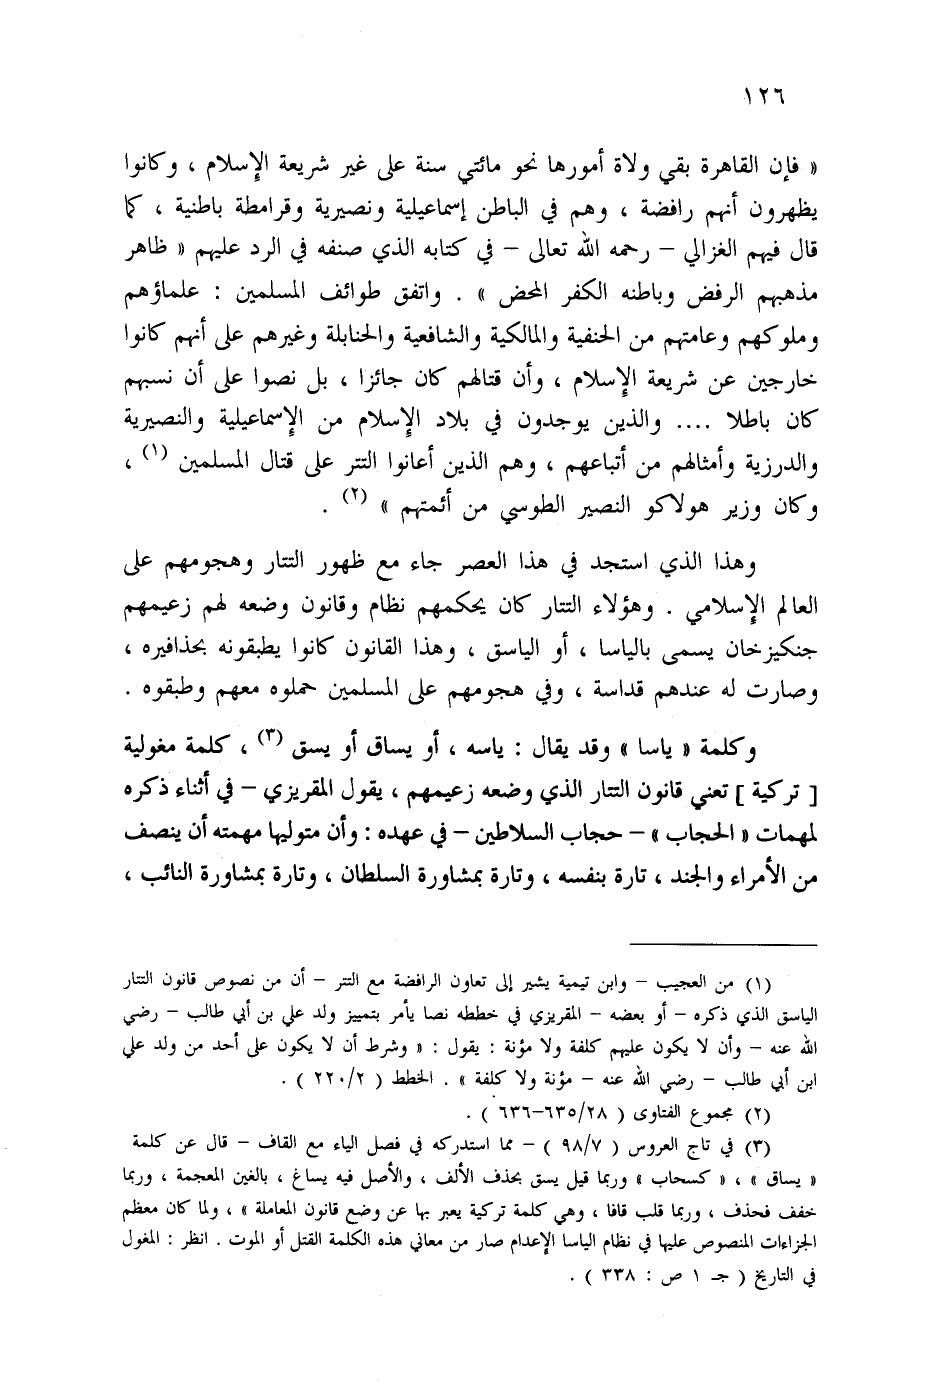 ١٢٦
« فإن القاهرة بقي ولاة أمورها نحو مائتي سنة على غير شريعة الإسلام ، وكانوا
يظهرون أنهم رافضة ، وهم في الباطن إسماعيلية ونصيرية وقرامطة باطنية ، كما
قال فيهم الغزالي – رحمه الله تعالى – في كتابه الذي صنفه في الرد عليهم « ظاهر
مذهبهم الرفض وباطنه الكفر المحض » . واتفق طوائف المسلمين : علماؤهم
وملوكهم وعامتهم من الحنفية والمالكية والشافعية والحنابلة وغيرهم على أنهم كانوا
خارجين عن شريعة الإسلام ، وأن قتالهم كان جائزا ، بل نصوا على أن نسبهم
كان باطلا .... والذين يوجدون في بلاد الإسلام من الإسماعيلية والنصيرية
والدرزية وأمثالهم من أتباعهم ، وهم الذين أعانوا التتر على قتال المسلمين (١) ،
وكان وزير هولاكو النصير الطوسي من أئمتهم » (٢) .
وهذا الذي استجد في هذا العصر جاء مع ظهور التتار وهجومهم على
العالم الإسلامي . وهؤلاء التتار كان يحكمهم نظام وقانون وضعه لهم زعيمهم
جنكيزخان يسمى بالياسا ، أو الياسق ، وهذا القانون كانوا يطبقونه بحذافيره ،
وصارت له عندهم قداسة ، وفي هجومهم على المسلمين حملوه معهم وطبقوه .
وكلمة « ياسا » وقد يقال : ياسه ، أو يساق أو يسق (٣) ، كلمة مغولية
[ تركية ] تعني قانون التتار الذي وضعه زعيمهم ، يقول المقريزي – في أثناء ذكره
لمهمات « الحجاب » – حجاب السلاطين – في عهده : وأن متوليها مهمته أن ينصف
من الأمراء والجند ، تارة بنفسه ، وتارة بمشاورة السلطان ، وتارة بمشاورة النائب ،
(١) من العجيب – وابن تيمية يشير إلى تعاون الرافضة مع التتر – أن من نصوص قانون التتار
الياسق الذي ذكره – أو بعضه – المقريزي في خططه نصا يأمر بتمييز ولد علي بن أبي طالب – رضي
الله عنه – وأن لا يكون عليهم كلفة ولا مؤنة : يقول : « وشرط أن لا يكون على أحد من ولد علي
ابن أبي طالب – رضي الله عنه – مؤنة ولا كلفة » . الخطط ( ٢٢٠/٢ ) .
(٢) مجموع الفتاوى ( ٦٣٥/٢٨–٦٣٦ ) .
(٣) في تاج العروس ( ٩٨/٧ ) – مما استدركه في فصل الياء مع القاف – قال عن كلمة
« يساق » ، « كسحاب » وربما قيل يسق بحذف الألف ، والأصل فيه يساغ ، بالغين المعجمة ، وربما
خفف فحذف ، وربما قلب قافا ، وهي كلمة تركية يعبر بها عن وضع قانون المعاملة » ، ولما كان معظم
الجزاءات المنصوص عليها في نظام الياسا الإعدام صار من معاني هذه الكلمة القتل أو الموت . انظر : المغول
في التاريخ ( جـ ١ ص : ٣٣٨ ) .